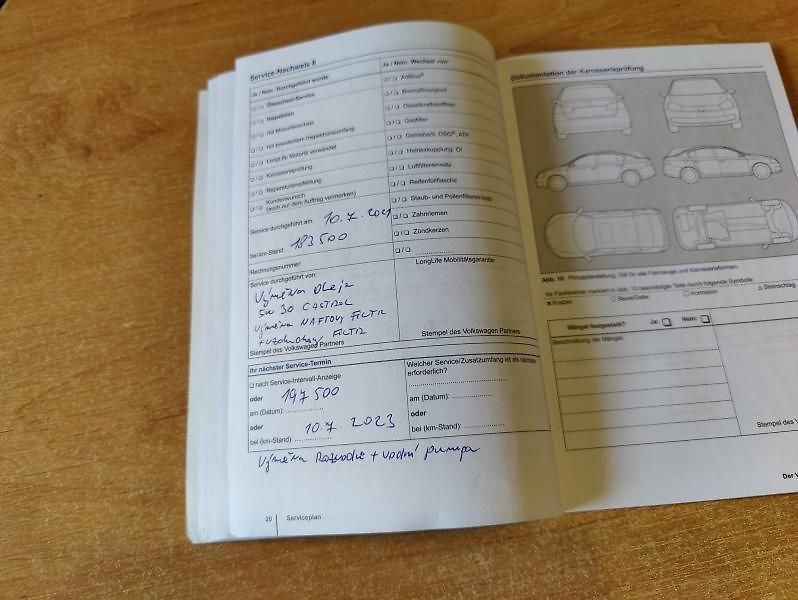 Service-Nachweis 8
Ja / Nein Durchgeführt wurde:
Ja / Nein Wechsel von:
❑/❑ Ölwechsel-Service
❑/❑ AdBlue®
❑/❑ Inspektion
❑/❑ Bremsflüssigkeit
❑/❑ mit Motorölwechsel
❑/❑ Dieselkraftstofffilter
❑/❑ mit erweitertem Inspektionsumfang
❑/❑ Gasfilter
❑/❑ LongLife Motoröl verwendet
❑/❑ Getriebeöl: DSG®, ATF
❑/❑ Karosserieprüfung
❑/❑ Haldexkupplung: Öl
❑/❑ Reparaturempfehlung
❑/❑ Luftfiltereinsatz
❑/❑ Kundenwunsch
(auch auf dem Auftrag vermerken)
❑/❑ Reifenfüllflasche
❑/❑ Staub- und Pollenfiltereinsatz
Service durchgeführt am: 10.7.2021
❑/❑ Zahnriemen
bei km-Stand: 183500
❑/❑ Zündkerzen
❑/❑ ..............
Rechnungsnummer:
LongLife Mobilitätsgarantie
Service durchgeführt von:
Výměna oleje
5W 30 CASTROL
výměna NAFTOVY FILTR
+ vzduchovy FILTR
Stempel des Volkswagen Partners
Stempel des Volkswagen Partners
Ihr nächster Service-Termin
❑ nach Service-Intervall-Anzeige
oder 197500
am (Datum): ..............
oder 10.7.2023
bei (km-Stand): ..............
Welcher Service/Zusatzumfang ist als nächstes
erforderlich?
am (Datum): ..............
oder
bei (km-Stand): ..............
Výměna Rozvodů + vodní pumpa
Serviceplan
Dokumentation der Karosserieprüfung
Abb. 10 Prinzipdarstellung. Gilt für alle Fahrzeuge und Karosserieformen.
Ihr Fachbetrieb markiert in Abb. 10 beschädigte Teile durch folgende Symbole:
× Kratzer ○ Beule/Delle □ Korrosion △ Steinschlag
Mängel festgestellt? Ja: ❑ Nein: ❑
Beschreibung der Mängel:
Stempel des
Der